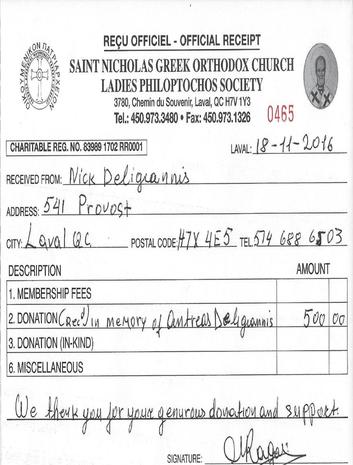 REÇU OFFICIEL - OFFICIAL RECEIPT
SAINT NICHOLAS GREEK ORTHODOX CHURCH
LADIES PHILOPTOCHOS SOCIETY
3780, Chemin du Souvenir, Laval, QC H7V 1Y3
Tel.: 450.973.3480 • Fax: 450.973.1326
0465
CHARITABLE REG. NO. 83989 1702 RR0001 LAVAL: 18-11-2016
RECEIVED FROM: Nick Deligiannis
ADDRESS: 541 Provost
CITY: Laval QC POSTAL CODE H7X 4E5 TEL 514 688 6503
DESCRIPTION AMOUNT
1. MEMBERSHIP FEES
2. DONATION in memory of Antreas Deligiannis 500 00
3. DONATION (IN-KIND)
6. MISCELLANEOUS
We thank you for your genurous donation and support.
SIGNATURE: